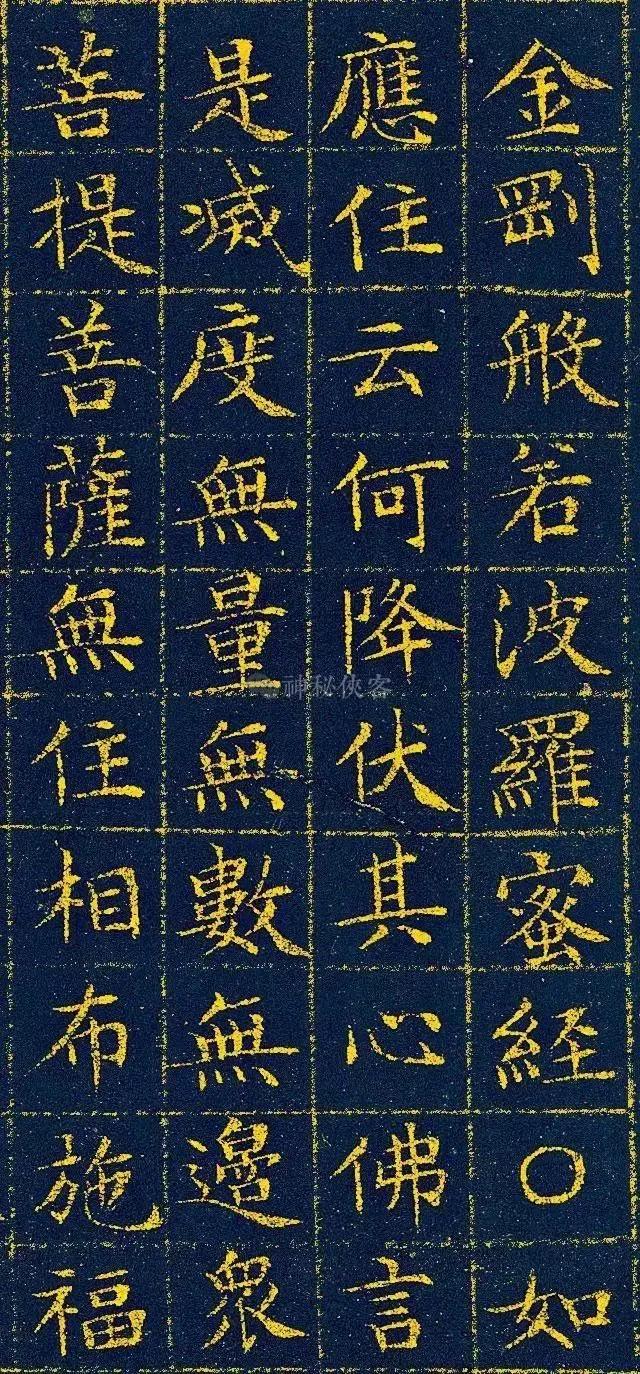 金剛般若波羅蜜経〇如
應住云何降伏其心佛言
是滅度無量無數無邊眾
菩提菩薩無住相布施福
神秘侠客